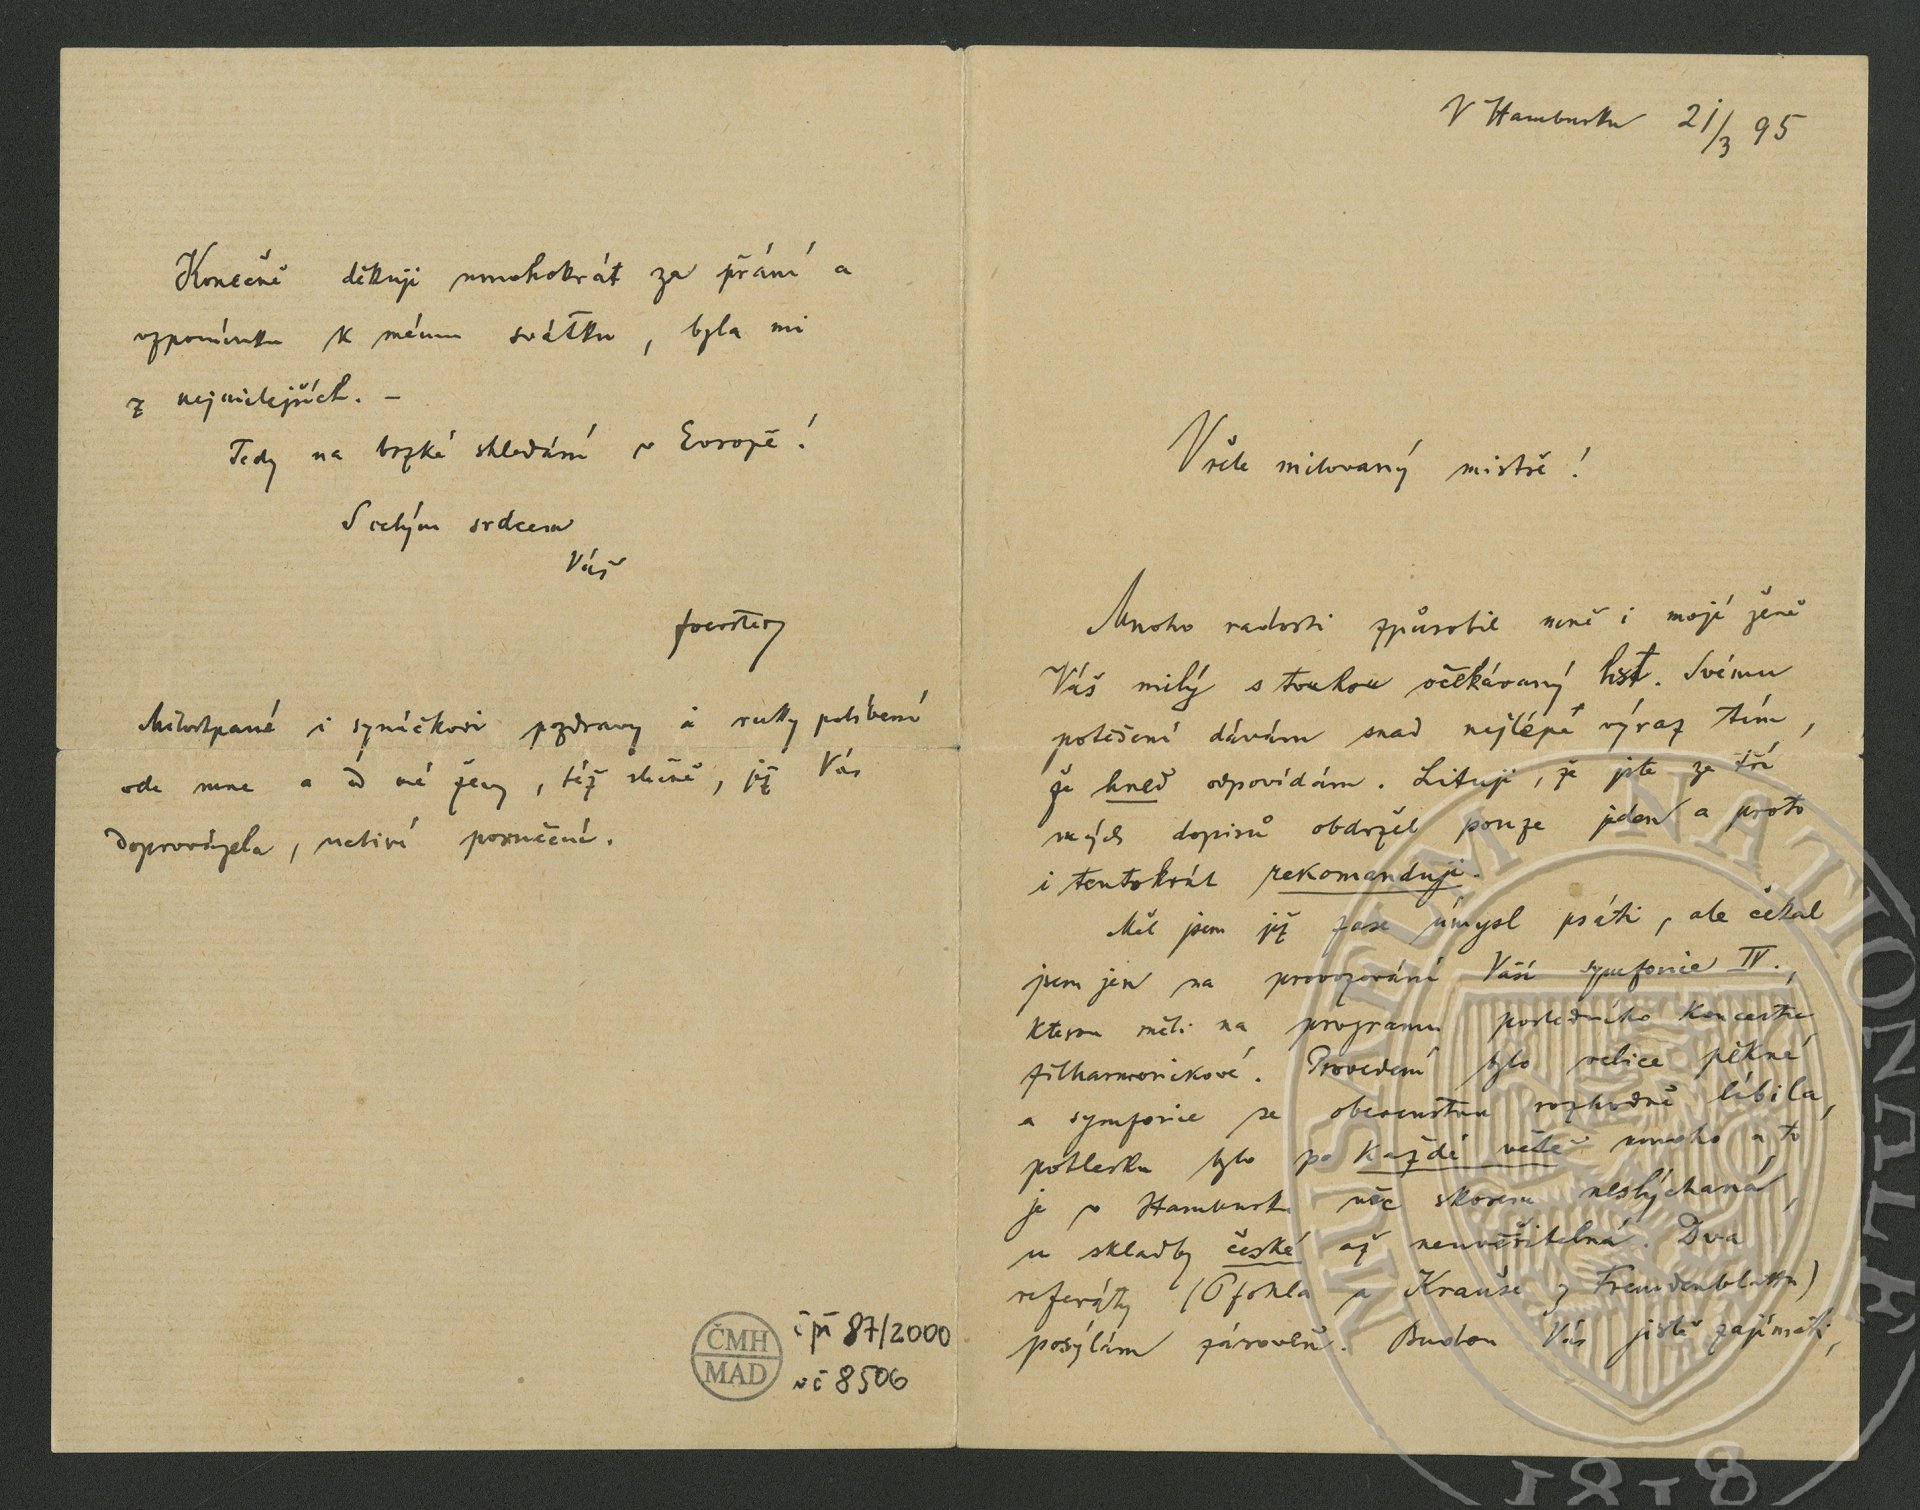 V Hamburku 21/3 95
Vřele milovaný mistře!
Mnoho radosti způsobil mně i mojí ženě
Váš milý s touhou očekávaný list. Svému
potěšení dávám snad nejlépe výraz tím,
že hned odpovídám. Lituji, že jste ze tří
mých dopisů obdržel pouze jeden a proto
i tentokrát rekomanduji.
Měl jsem již zase úmysl psáti, ale čekal
jsem jen na provozování Vaší symfonie IV.,
kterou měli na programu posledního koncertu
filharmonickové. Provedení bylo velice pěkné
a symfonie se obecenstvu rozhodně líbila,
potlesku bylo po každé větě mnoho a to
je v Hamburku věc skorem neslýchaná,
u skladby české až neuvěřitelná. Dva
referáty (Pfohla a Krause z Fremdenblattu)
posýlám zároveň. Budou Vás jistě zajímati,
Konečně děkuji mnohokrát za přání a
vzpomínku k mému svátku, byla mi
z nejmilejších. –
Tedy na brzké shledání v Evropě!
S celým srdcem
Váš
Foerster
Milostpané i synáčkovi pozdravy a ruky políbení
ode mne a od mé ženy, též slečně, jež Vás
doprovázela, uctivé poručení.
ČMH
MAD
č př 87/2000
v č 8506
MUSAEUM NATIONALE
1818